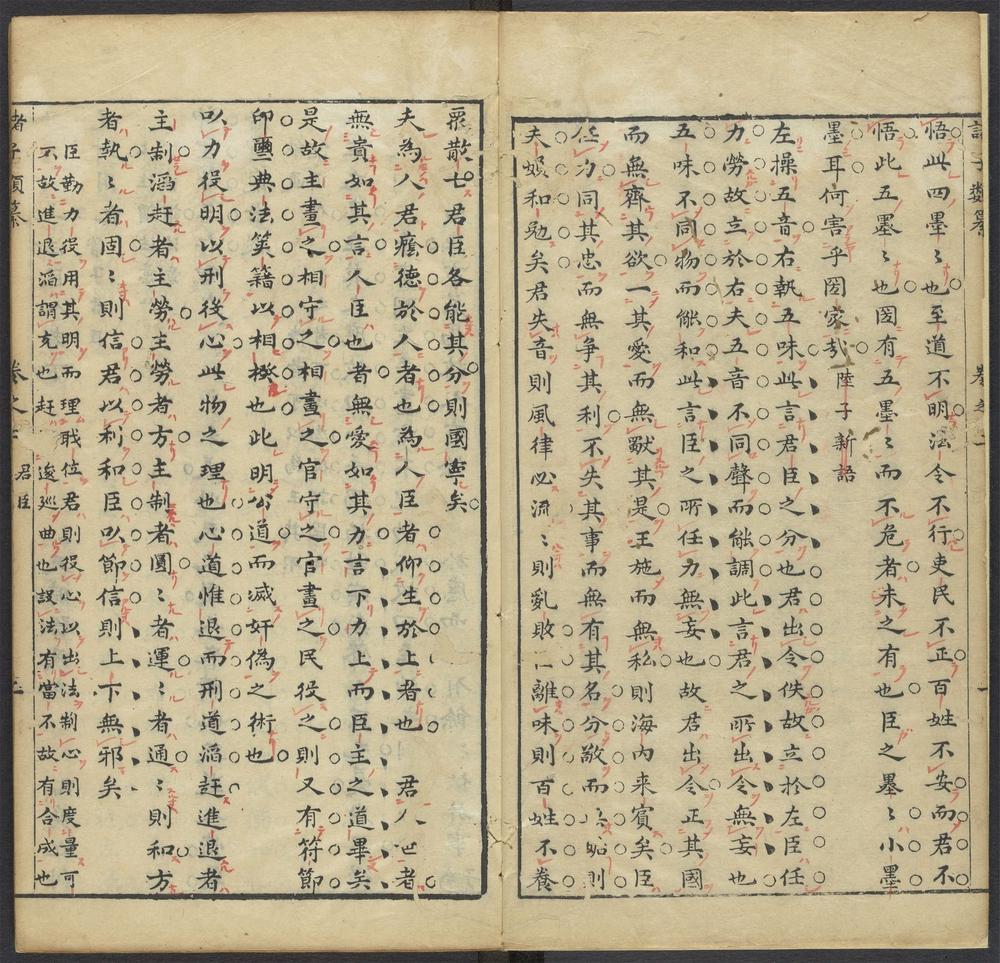 諸子類纂　卷之二　一
悟此四墨〻也至道不明法令不行吏民不正百姓不安而君不
悟此五墨〻也國有五墨〻而不危者未之有也臣之墨〻小墨
墨耳何害乎國家哉 陸子新語
左操五音右執五味此言君臣之分也君出令佚故立於左臣任
力勞故立於右夫五音不同聲而能調此言君之所出令無妄也
五味不同物而能和此言臣之所任力無妄也故君出令正其國
而無齊其欲一其愛而無獸其是王施而無私則海内来賓矣臣
任力同其忠而無争其利不失其事而無有其名分敬而無妬則
夫婦和勉矣君失音則風律必流〻則亂敗臣離味則百姓不養
衆散亡君臣各能其分則國寧矣
夫為人君癊德於人者也為人臣者仰生於上者也　君人也者
無貴如其言人臣也者無愛如其力言下力上而臣主之道畢矣
是故主畫之相守之相畫之官守之官畫之民役之則又有符節
印璽典法筴籍以相揆也此明公道而滅奸僞之術也
以力役明以刑役心此物之理也心道惟退而刑道滔赶進退者
主制滔赶者主勞主勞者方主制者圓〻者運〻者通〻則和方
者執〻者固〻則信君以利和臣以節信則上下無邪矣
臣勤力役用其明而理職位君則役心以出法制心則度量可
不故進退滔謂充也赶　逡廵曲也誤法有當不故有合成也
者子類纂　卷之二　君臣　二